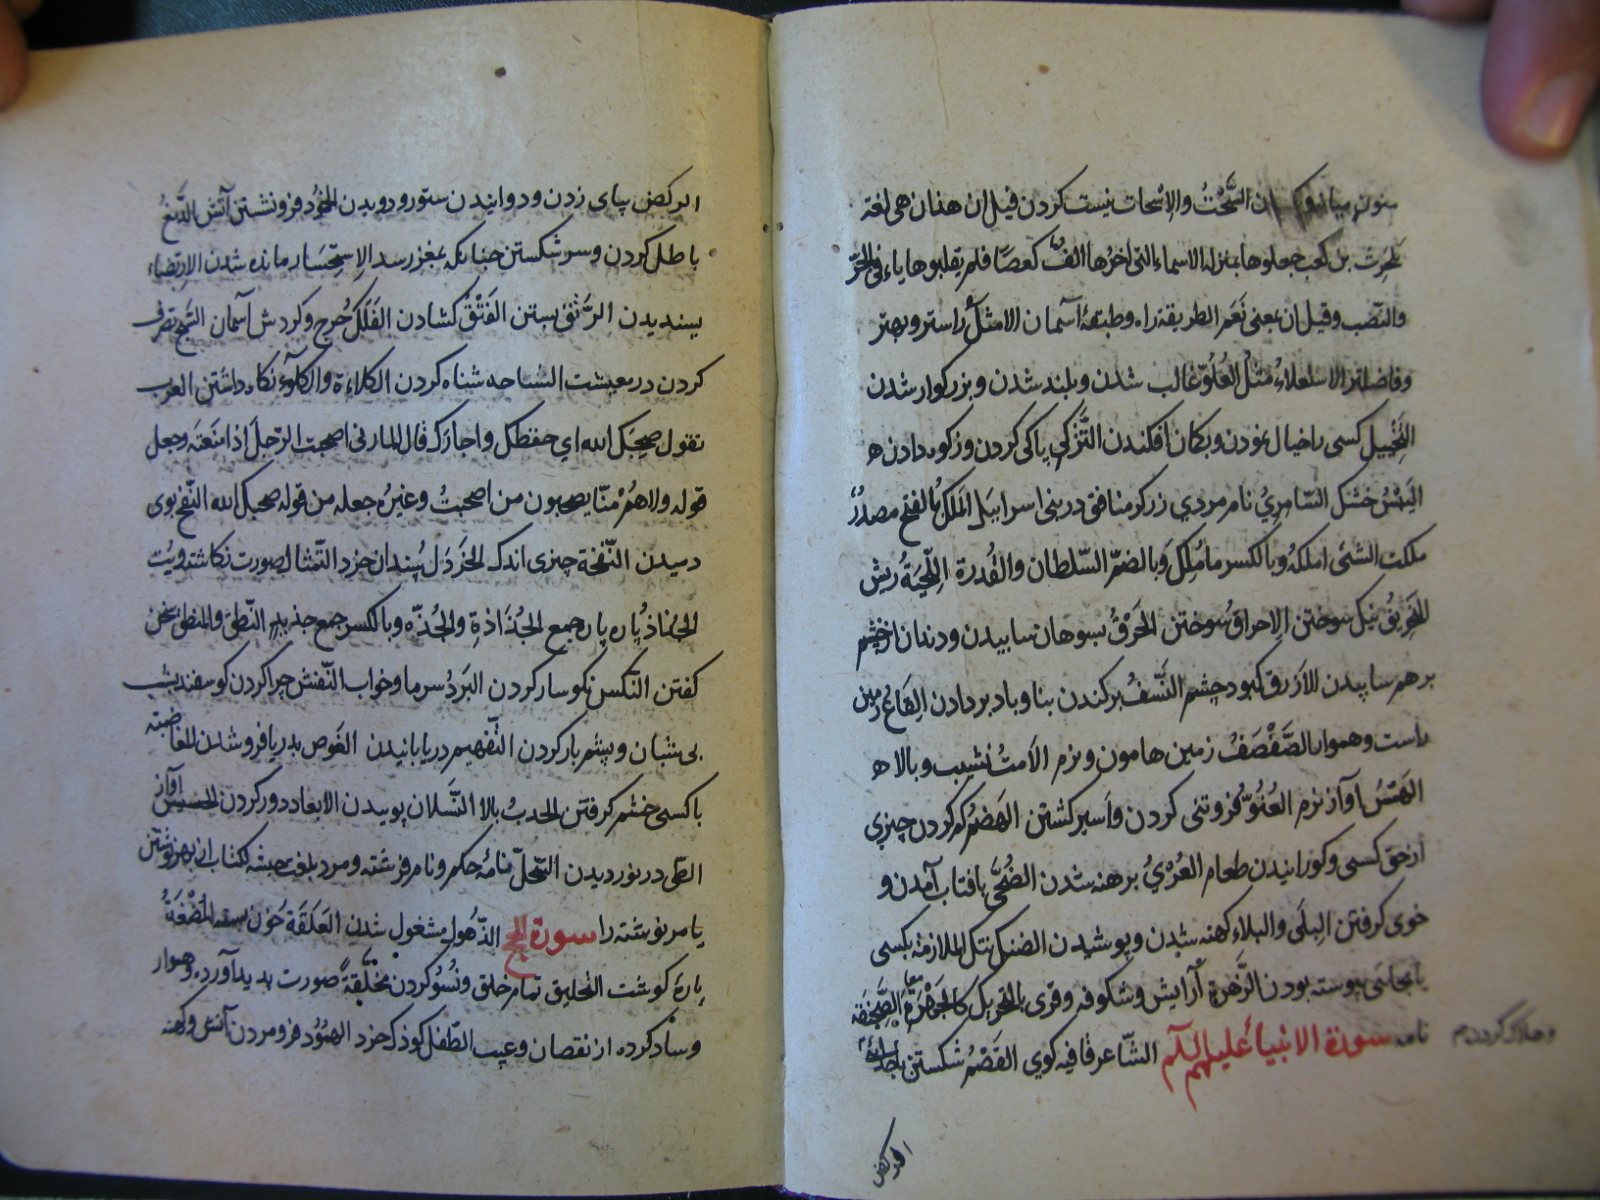 السُّحْتُ والاِسْحات نیست کردن قیل ان هذان هی لغة
بلحرث بن کعب جعلوها بمنزله الاسماء التی اخرُها الفٌ کعصًا فلم یقلبوها یاء فی الجرّ
والنّصب وقیل ان بمعنی نَعَم الطریقة راه وطبقهٔ آسمان الامثلُ راستر وبهتر
وفاضلتر الاستعلاءُ مثلُ العُلُوّ غالب شدن وبلند شدن وبزرکوار شدن
التَّخْییل کسی باخیال نمودن وبکان افکندن التَّزَکّی پاکی کردن وزکوه دادن ه
الیَبَسُ خشک السّامِرِیُّ نام مردی زرکر منافق در بنی اسراییل المَلْکُ بالفتح مصدرُ
ملکت الشئ املکهُ وبالکسر ما مُلِکَ وَبالضمّ السّلطان والقُدرة اللِّحْیَةُ ریش
التَّحْرِیقُ نیک سوختن الاِحراقُ سُوختن الحَرْقُ بسوهان ساییدن ودندان ازخشم
برهم ساییدن الاَزرق کبود چشم النَّسْفُ برکندن بنا وباد بردادن القاعُ زمین
راست وهموار الصَّفْصَفُ زمین هامون ونرم الاَمتُ نشیب وبالا ه
الهَمْسُ آواز نرم العُنُوّ فروتنی کردن واَسیر کشتن الهَضْمُ کم کردن چیزی
ازحق کسی وکورانیدن طعام العُرْیُ برهنه شدن الضُّحَی بافتاب آمدن و
خوی کرفتن البِلَی والبلاء کهنه شدن وپوشیدن الضنک تنک الملازمة بکسی
یابجائی پیوسته بودن الزَّهْرَة آرایش وشکوفه وقری بالتحریک کالجَهْرَةِ الصَّحِیْفَة
نامه سورة الانبیاء علیهم السلم الشّاعر قافیه کوی القَصْمُ شکستن
وهلاک کردن م
الرکض
الرکض بپای زدن ودوانیدن ستور ودویدن الخُمُود فرونشستن آتش الدَّمْغُ
باطل کردن وسر شکستن چنانکه بمغز رسد الاِسْتِحْسَار مانده شدن الاِرْتِضاء
پسندیدن الرَّتْق بستن الفَتْقُ کشادن الفَلَک چرخ وکردش آسمان التصرف
کردن در معیشت السّباحه شناه کردن الکلاءة نکاه داشتن العرب
تقول صحبک الله ای حفظک واجارک قال المازنی اصحبت الرّجل اذا منعته وجعل
قوله ولاهُمْ مِنّا یصحبون من اصحبتُ وغیرُ جعله من قوله صحبک الله النّفح بوی
دمیدن النّفْحة چیزی اندک الخَردَل سپندان خرد التّمثال صورت نکاشته وبُت
الجُذاذ پاره پاره جمع الجُذَاذة والجُذّه وبالکسر جمع جذیذ النّطق والمنطق سخن
کفتن النّکس نکوسار کردن البَردُ سرما وخواب النّفش چرا کردن کوسفند بشب
بی شبان وپشم بار کردن التّفهیم دریابانیدن الغَوص بدریا فروشدن المُغاضبة
باکسی خشم کرفتن الحدبُ بالا النَّسَلان پوییدن الابعاد دور کردن الحسیس آواز
الطّی درنوردیدن السِّجلّ نامهٔ حکم ونام فرشته ومرد بلغت حبشه للکتاب ای بهر نوشتن
یا مر نوشته را سورة الحج الذّهول مشغول شدن العَلَقَة خون بسته المُضْغَةُ
پارهٔ کوشت التخلیق تمام خلق ونسو کردن مُخَلَّقَةٍ صورت پدید آورده وهموار
وساده کرده از نقصان وعیب الطّفل کوذک خرد الهُمُوْد فرومردن آتش وکهنه